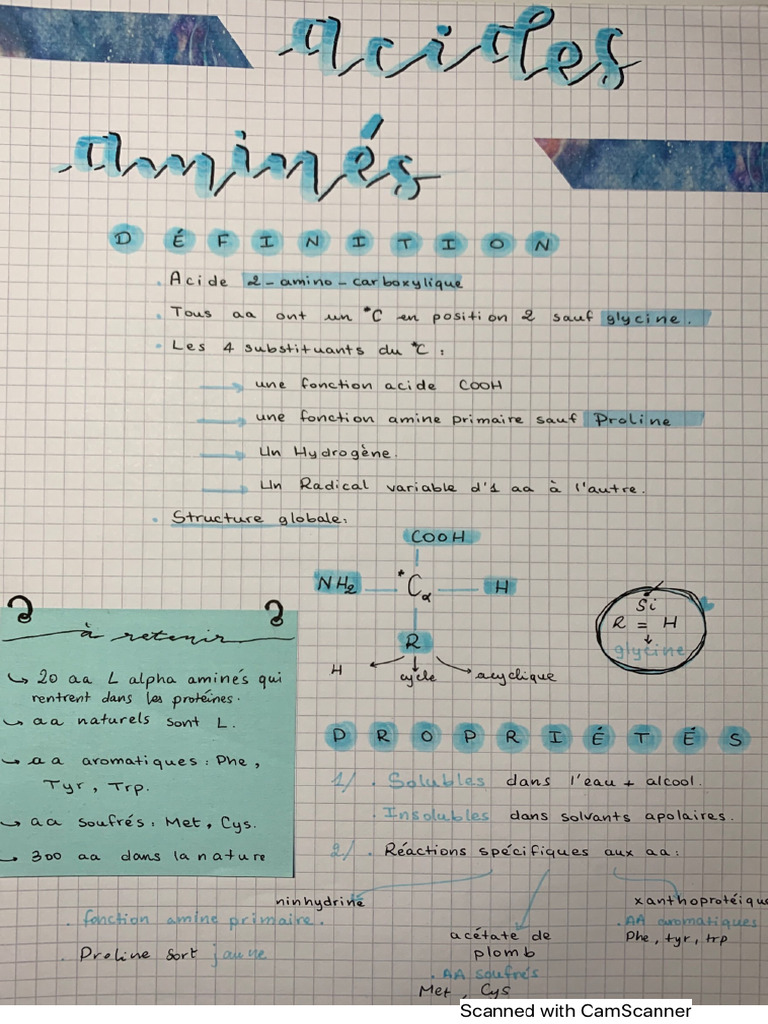 acides
aminés
DÉFINITION
. Acide 2-amino-carboxylique
. Tous aa ont un *C en position 2 sauf glycine.
. Les 4 substituants du *C :
→ une fonction acide COOH
→ une fonction amine primaire sauf Proline
→ Un Hydrogène.
→ Un Radical variable d'1 aa à l'autre.
. Structure globale:
COOH
NH2 *Cα H
R
H cycle acyclique
Si
R = H
↓
glycine
à retenir
↳ 20 aa L alpha aminés qui
rentrent dans les protéines.
↳ aa naturels sont L.
↳ aa aromatiques : Phe,
Tyr, Trp.
↳ aa soufrés : Met, Cys.
↳ 300 aa dans la nature
PROPRIÉTÉS
1/ . Solubles dans l'eau + alcool.
. Insolubles dans solvants apolaires.
2/ . Réactions spécifiques aux aa :
ninhydrine
. fonction amine primaire.
. Proline sort jaune
acétate de
plomb
. AA soufrés
Met, Cys
xanthoprotéique
. AA aromatiques
Phe, tyr, trp
Scanned with CamScanner